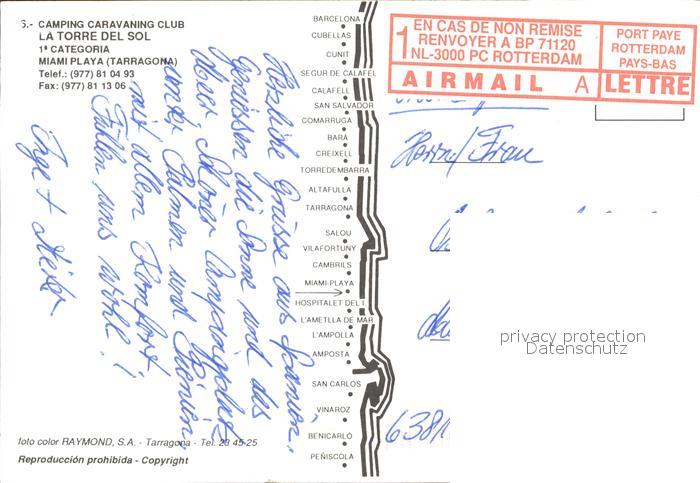 6.- CAMPING CARAVANING CLUB
LA TORRE DEL SOL
1ª CATEGORIA
MIAMI PLAYA (TARRAGONA)
Telef.: (977) 81 04 93
Fax: (977) 81 13 06
Herzliche Grüsse aus Spanien.
Geniessen die Sonne und das
Meer. Schöner Campingplatz
unter Palmen und Pienien,
mit allem Komfort.
Fühlen uns wohl!
Inge +
foto color RAYMOND, S.A. - Tarragona - Tel. 23 45 25
Reproducción prohibida - Copyright
BARCELONA
CUBELLAS
CUNIT
SEGUR DE CALAFEL
CALAFELL
SAN SALVADOR
COMARRUGA
BARÁ
CREIXELL
TORREDEMBARRA
ALTAFULLA
TARRAGONA
SALOU
VILAFORTUNY
CAMBRILS
MIAMI-PLAYA
HOSPITALET DEL I.
L'AMETLLA DE MAR
L'AMPOLLA
AMPOSTA
SAN CARLOS
VINAROZ
BENICARLÓ
PEÑISCOLA
1 EN CAS DE NON REMISE
RENVOYER A BP 71120
NL-3000 PC ROTTERDAM
PORT PAYE
ROTTERDAM
PAYS-BAS
AIRMAIL A LETTRE
Herrn/Frau
privacy protection
Datenschutz
6381